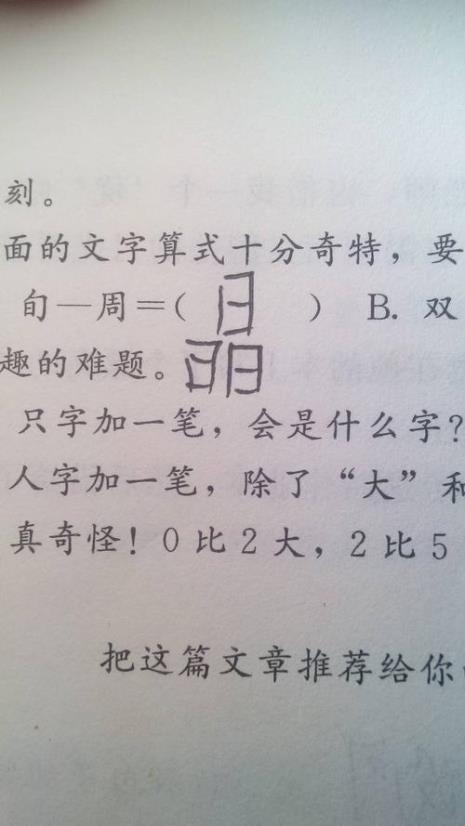 刻。
面的文字算式十分奇特，要
旬—周=( 旧 ) B. 双
趣的难题。
只字加一笔，会是什么字？
人字加一笔，除了“大”和
真奇怪！0比2大，2比5
把这篇文章推荐给你